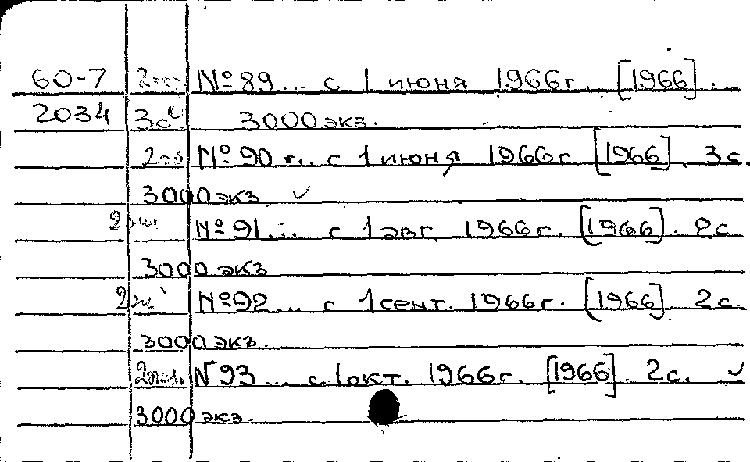 60-7 №89... с 1 июня 1966г. [1966].
2034 3с 3000 экз.
№90... с 1 июня 1966г. [1966]. 3с.
3000 экз. ✓
№91... с 1 авг. 1966г. [1966]. 2с.
3000 экз
№92... с 1 сент. 1966г. [1966]. 2с.
3000 экз.
№93... с 1 окт. 1966г. [1966]. 2с. ✓
3000 экз.